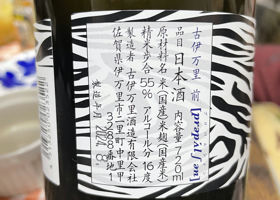 古伊万里 前
品目 日本酒 内容量 720ml
原材料名 米(国産)米麹(国産米)
精米歩合 55% アルコール分 16度
製造者 古伊万里酒造有限会社
佐賀県伊万里市二里町中里甲
3288番地1
製造年月 2024.8